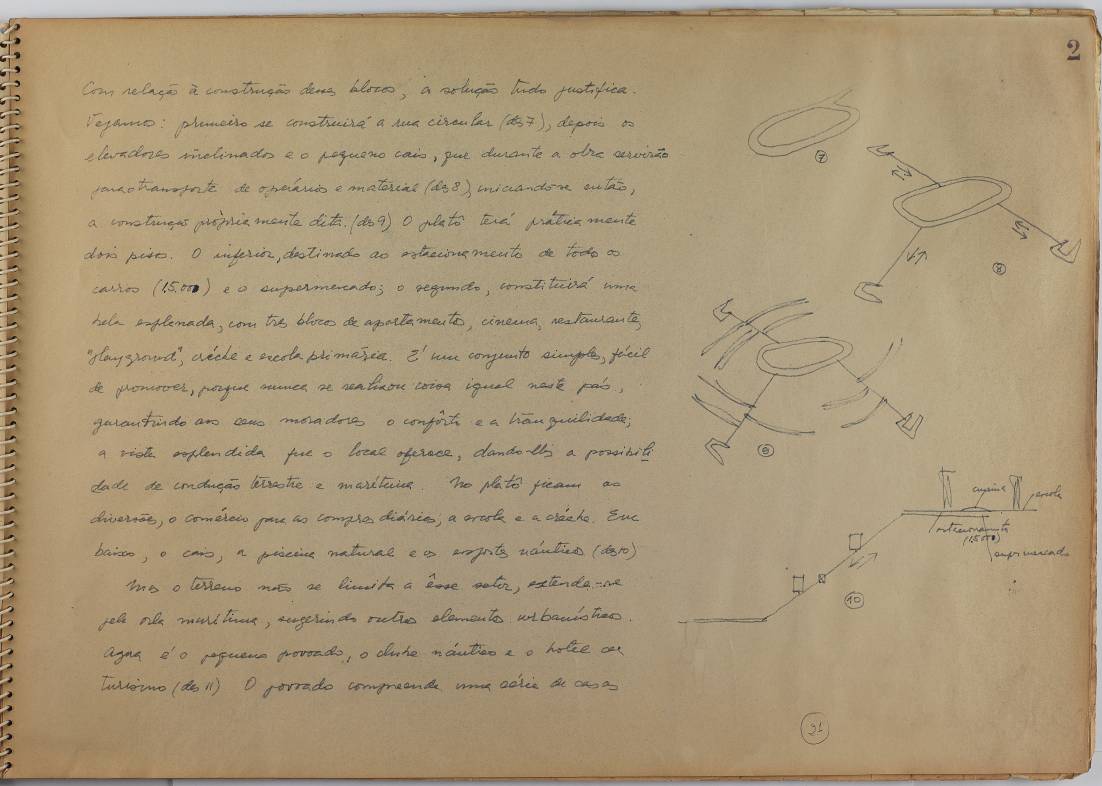 2
Com relação à construção desses blocos, a solução tudo justifica.
Vejamos: primeiro se construirá a rua circular (des 7), depois os
elevadores inclinados e o pequeno cais, que durante a obra servirão
para o transporte de operários e material (des 8), iniciando-se então,
a construção pròpriamente dita. (des 9) O platô terá pràticamente
dois pisos. O inferior, destinado ao estacionamento de todos os
carros (1.500) e o supermercado; o segundo, constituirá uma
bela esplanada, com três blocos de apartamentos, cinema, restaurante,
"playground", créche e escola primária. É um conjunto simples, fácil
de promover, porque nunca se realizou coisa igual neste país,
garantindo aos seus moradores o confôrto e a tranquilidade;
a vista esplendida que o local oferece, dando-lhes a possibili
dade de condução terrestre e marítima. No platô ficam as
diversões, o comércio para as compras diárias, a escola e a créche. Em
baixo, o cais, a piscina natural e os esportes náuticos (des 10)
Mas o terreno não se limita a êsse setor, extende-se
pela orla marítima, sugerindo outros elementos urbanísticos.
Agora é o pequeno povoado, o clube náutico e o hotel de
turismo (des 11) O povoado compreende uma série de casas
7
8
9
cinema
escola
estacionamento
(1.500)
supermercado
10
21